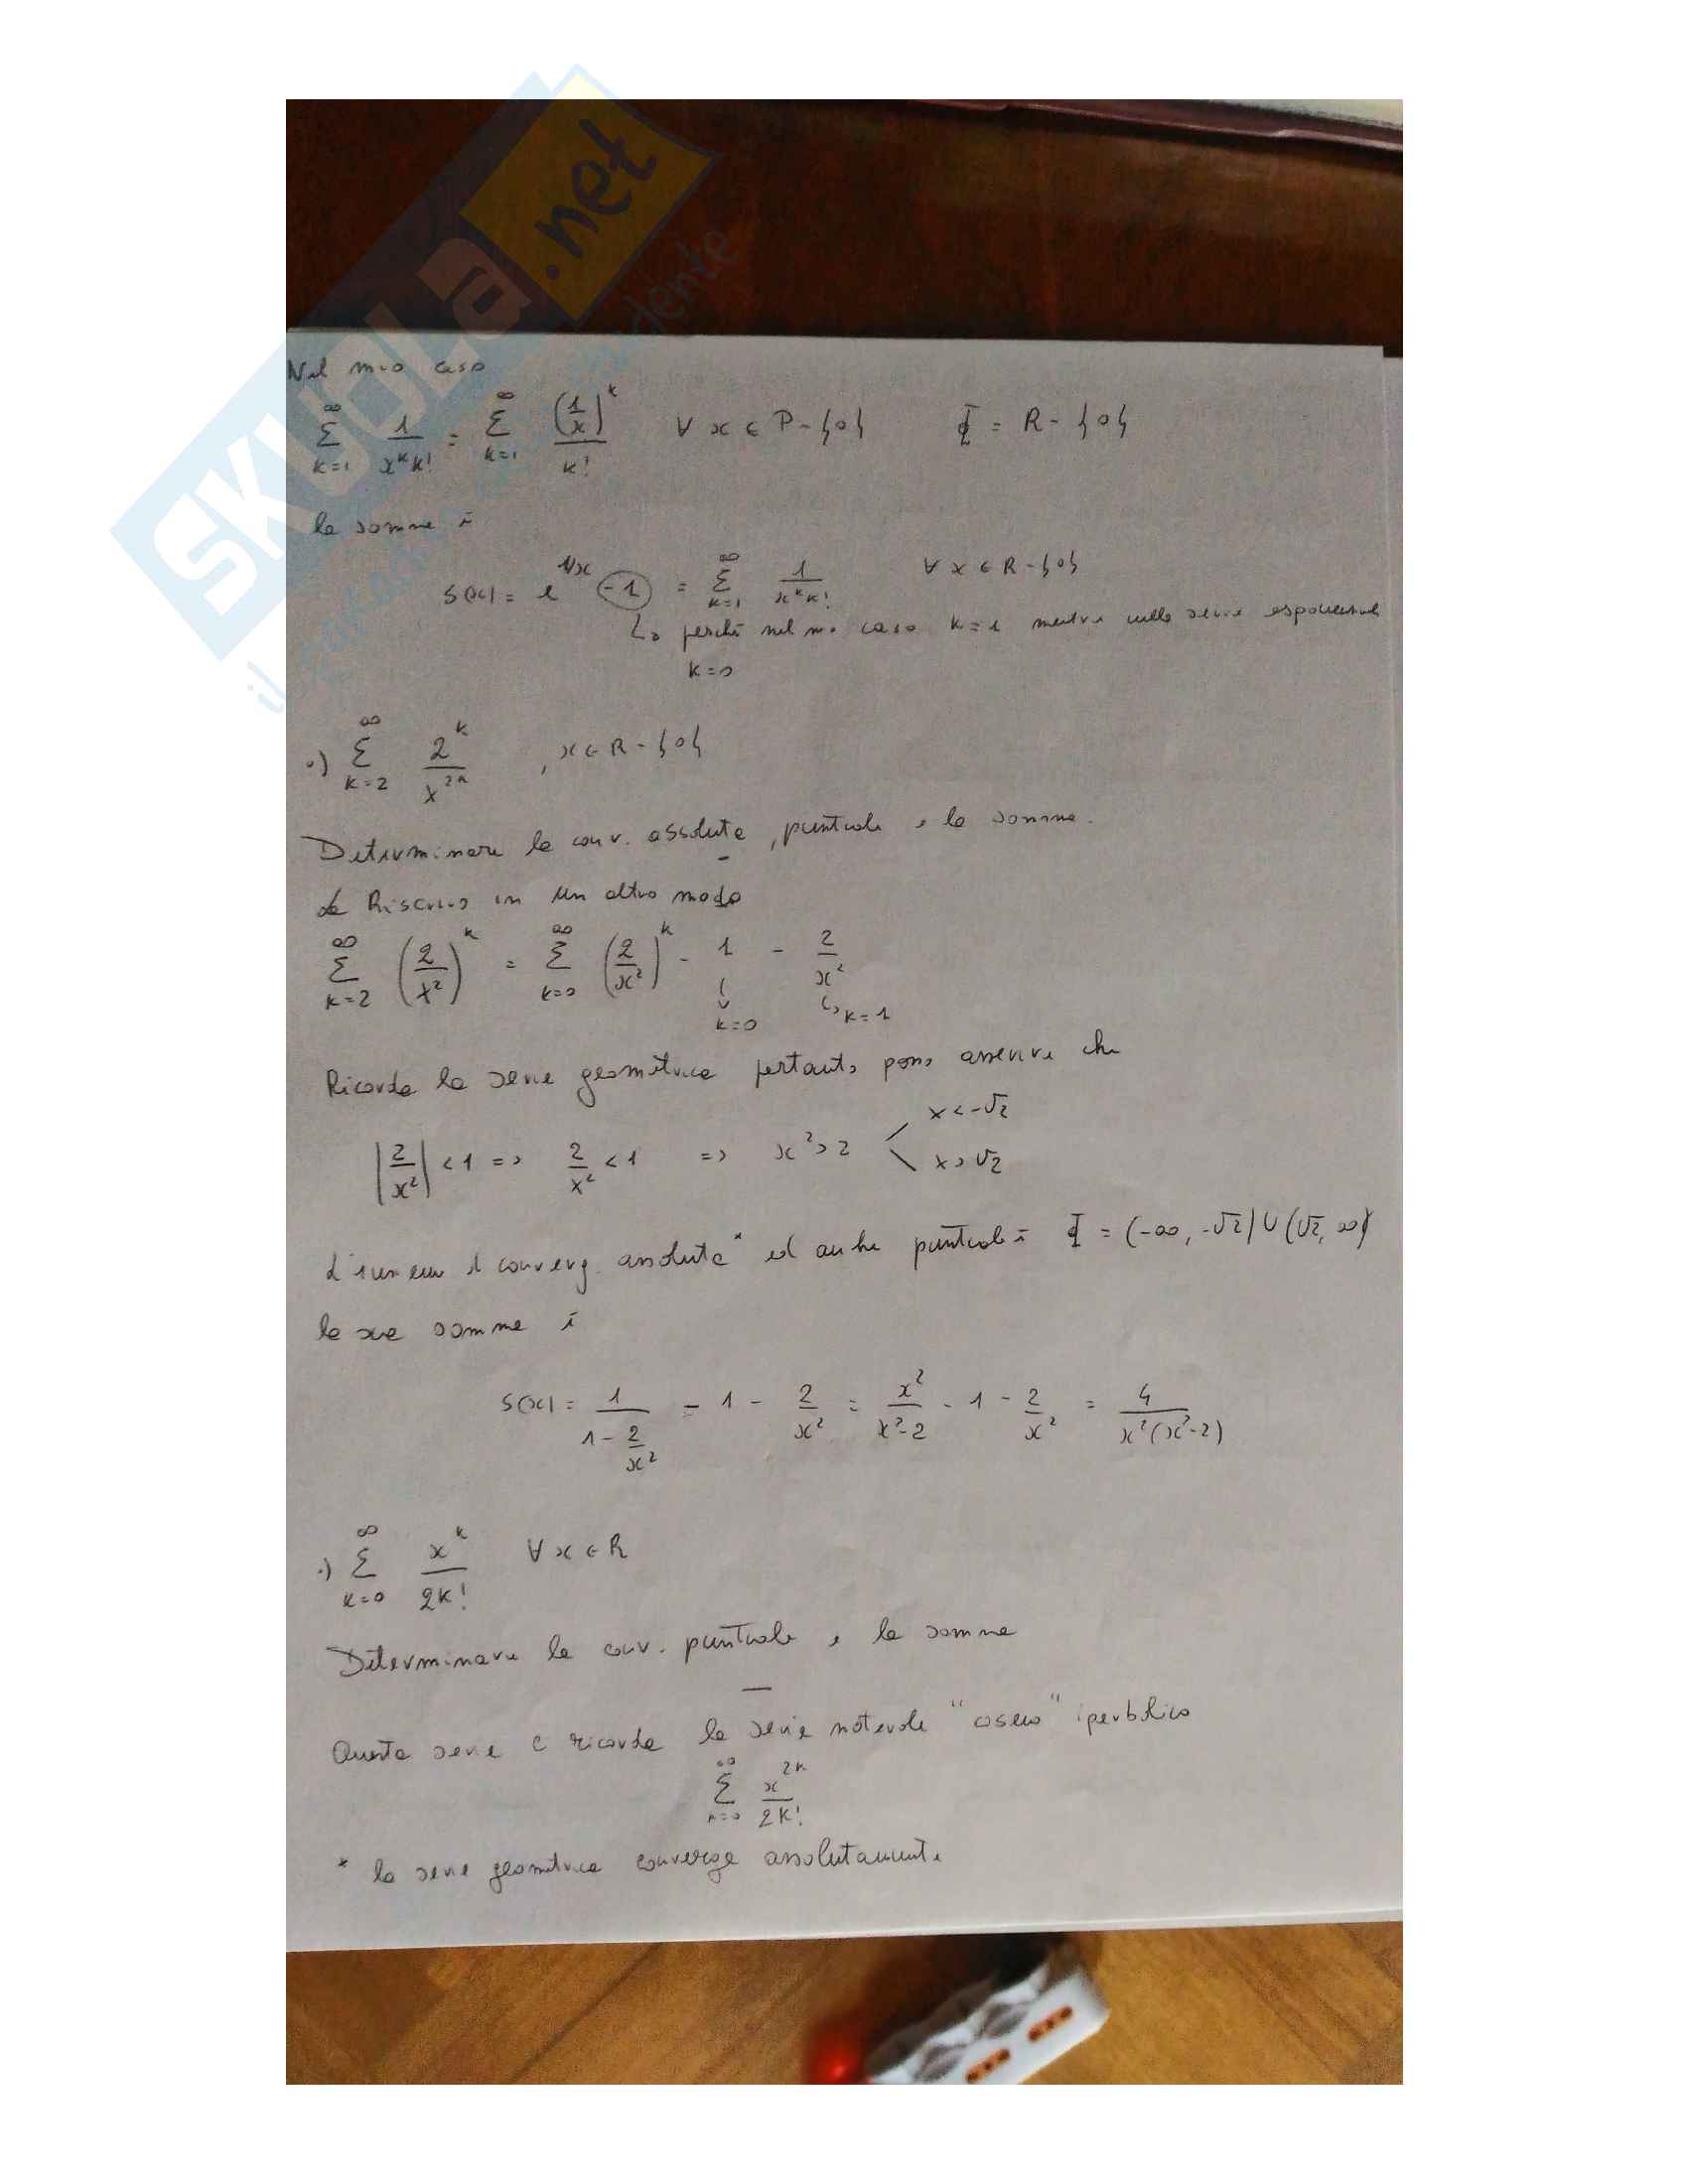 SKUOLA.net
Nel mio caso
∞ Σ k=1 1/(x^k k!) = ∞ Σ k=1 (1/x)^k / k! ∀ x ∈ R - {0} Φ = R - {0}
la somma è
S(x) = e^{1/x} -1 = ∞ Σ k=1 1/(x^k k!) ∀ x ∈ R - {0}
↳ perché nel mio caso k=1 mentre nella serie esponenziale
k=0
•) ∞ Σ k=2 2^k / x^{2k} , x ∈ R - {0}
Determinare la conv. assoluta, puntuale e la somma.
Riscrivo in un altro modo
∞ Σ k=2 (2/x²)^k = ∞ Σ k=0 (2/x²)^k - 1 - 2/x²
k=0 ↳ k=1
Ricorda la serie geometrica pertanto posso asserire che
|2/x²| < 1 => 2/x² < 1 => x² > 2 x < -√2
x > √2
L'insieme di converg. assoluta* ed anche puntuale è Φ = (-∞, -√2) ∪ (√2, ∞)
la sua somma è
S(x) = 1/(1 - 2/x²) - 1 - 2/x² = x²/(x²-2) - 1 - 2/x² = 4/(x²(x²-2))
•) ∞ Σ k=0 x^k / 2k! ∀ x ∈ R
Determinare la conv. puntuale e la somma
Questa serie ci ricorda la serie notevole "coseno" iperbolico
∞ Σ k=0 x^{2k} / 2k!
* la serie geometrica converge assolutamente